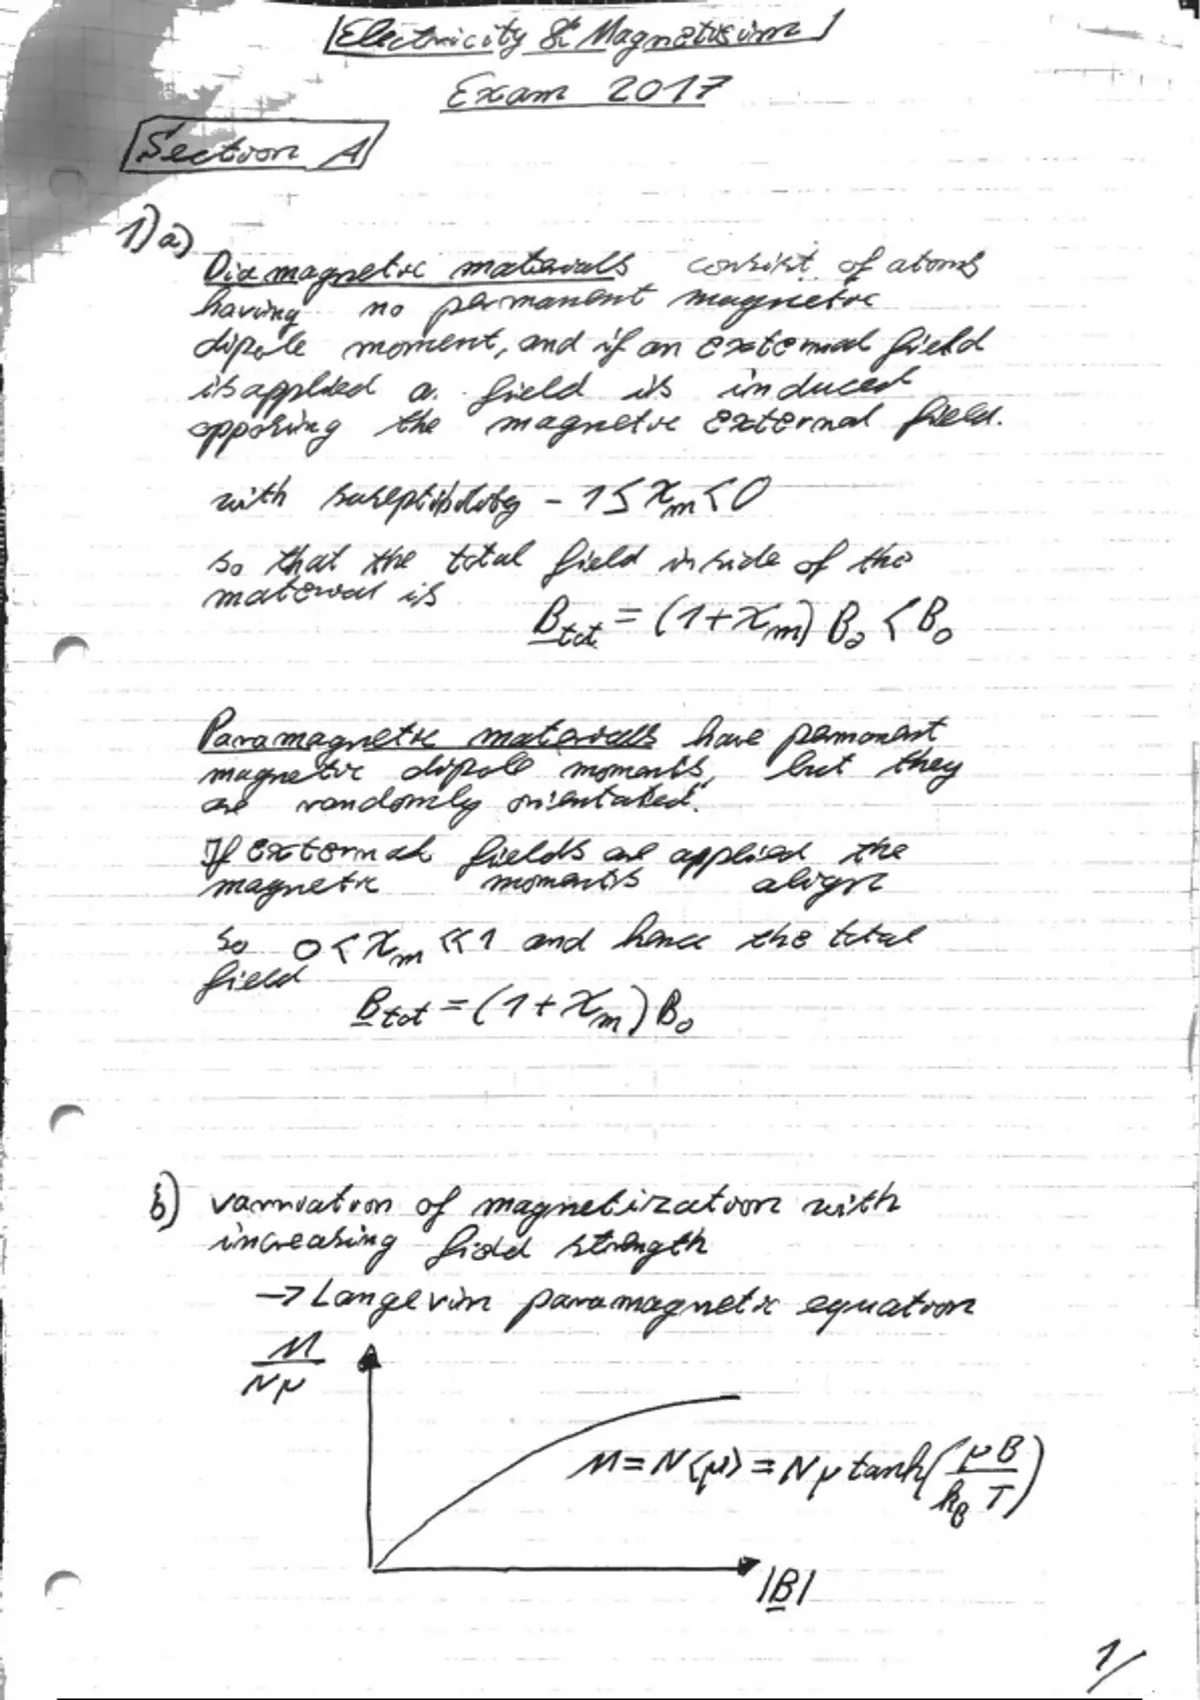 Electricity & Magnetism
Exam 2017
Section A
1) a)
Diamagnetic materials consist of atoms
having no permanent magnetic
dipole moment, and if an external field
is applied a field is induced
opposing the magnetic external field.
with suseptibility - 1 ≤ χm < 0
so that the total field inside of the
material is
B_tot = (1+χm) B₀ < B₀
Paramagnetic materials have permanent
magnetic dipole moments, but they
are randomly orientated.
If external fields are applied the
magnetic moments align
so 0 < χm ≪ 1 and hence the total
field
B_tot = (1+χm) B₀
b) varriation of magnetization with
increasing field strength
→ Langevin paramagnetic equation
M/Nμ
M = N⟨μ⟩ = Nμ tanh(μB/k_B T)
|B|
1/